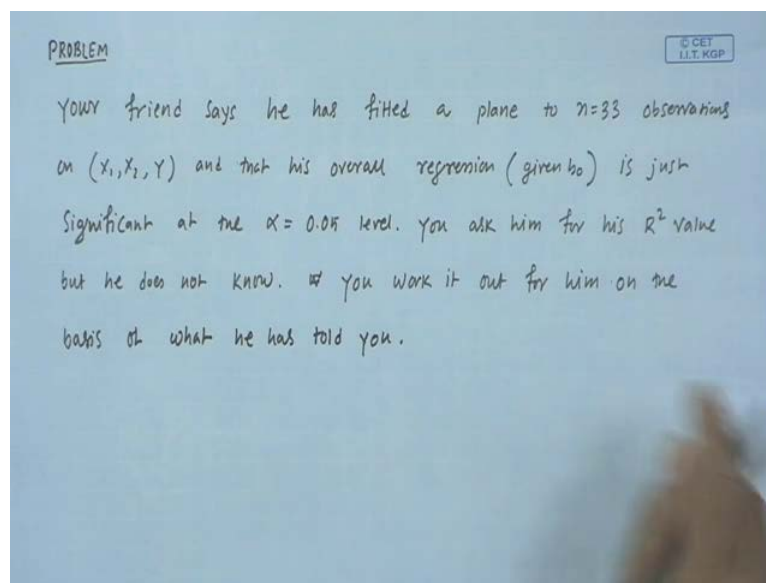 PROBLEM
© CET
I.I.T. KGP
Your friend says he has fitted a plane to n=33 observations
on (X₁, X₂, Y) and that his overall regression (given b₀) is just
Significant at the α = 0.05 level. You ask him for his R² value
but he does not know. You work it out for him on the
basis of what he has told you.